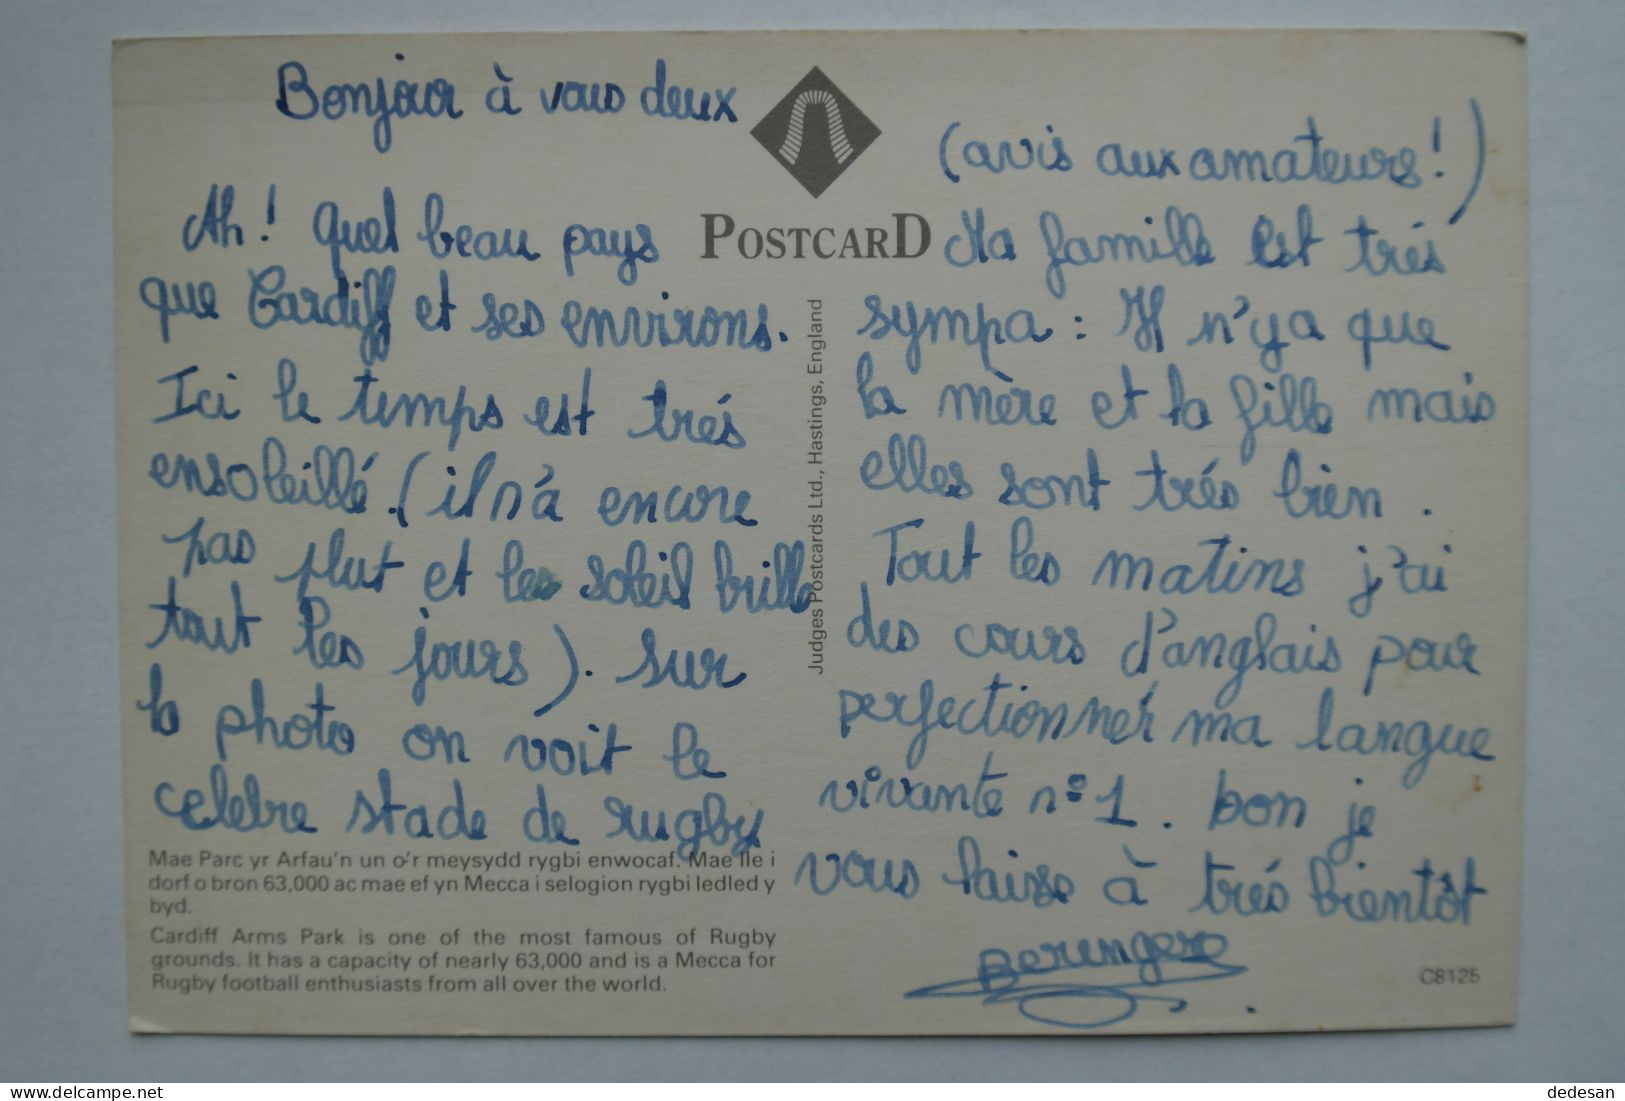 Bonjour à vous deux
Ah! Quel beau pays
que Cardiff et ses environs.
Ici le temps est trés
ensoleillé. (il n'à encore
pas plut et le soleil brille
tout les jours). sur
la photo on voit le
celebre stade de rugby
Mae Parc yr Arfau'n un o'r meysydd rygbi enwocaf. Mae lle i
dorf o bron 63,000 ac mae ef yn Mecca i selogion rygbi ledled y
byd.
Cardiff Arms Park is one of the most famous of Rugby
grounds. It has a capacity of nearly 63,000 and is a Mecca for
Rugby football enthusiasts from all over the world.
POSTCARD
Judges Postcards Ltd., Hastings, England
(avis aux amateurs!)
Ma famille est trés
sympa : Il n'ya que
la mère et la fille mais
elles sont trés bien.
Tout les matins j'ai
des cours d'anglais pour
perfectionner ma langue
vivante n°1. bon je
vous laisse à trés bientôt
Berengere
C8125
dedesan